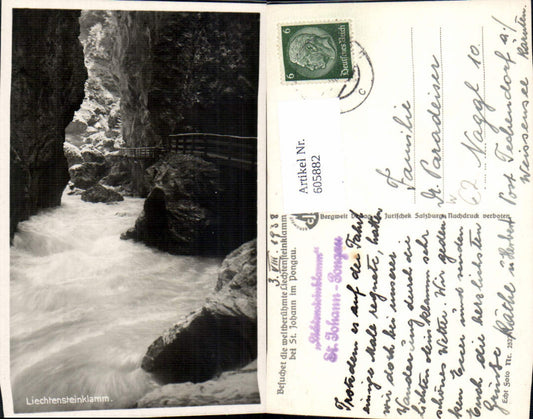 Liechtensteinklamm.
6
6
Deutsches Reich
Artikel Nr.
605882
Familie
Dr. Paradeiser
Naggl 10.
Post Techendorf a/
Weissensee Kärnten.
3. VIII. 1938
Besuchet die weltberühmte Liechtensteinklamm
bei St. Johann im Pongau.
"Liechtensteinklamm"
St. Johann-Pongau
Bergwelt
Salzburg. Nachdruck verboten
Trotzdem es auf der Fahrt
einige Male regnete, hatten
wir doch bei unserer
Wanderung durch die
Liechtensteinklamm sehr
schönes Wetter. Wir gedenken
Euer und senden
Euch die herzlichsten
Grüsse Käthe u. Hubert
Echt Foto Nr.